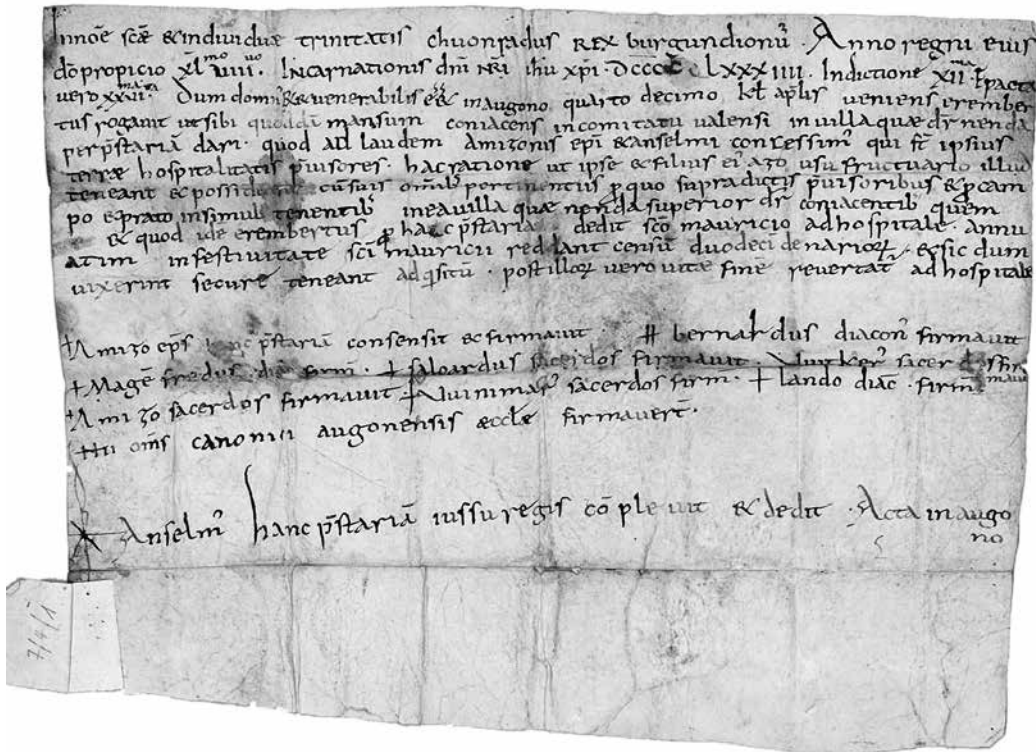 Innōe scæ & individuæ trinitatis chuonradus REX burgundionū. Anno regni eius
dō propicio XL mo VIIII no. Incarnationis dni NRI ihu xpi. DCCCC LXXXIIII. Indictione XII ma
vero XXVI. Dum domn & venerabilis in augono quarto decimo kł aplis veniens erember
tus rogavit ut sibi quoddā mansum coniacens in comitatu valensi in villa quæ dr nenda
per pstariā dari. quod ad laudem amizonis epi & anselmi concessim qui ipsius
terræ hospitalitatis pvisores. hac ratione ut ipse & filius ei azo usu fructuario illū
teneant & possideant cū suis omib pertinentiis p quo supradictis pvisoribus & p cam
po & prato insimul tenentib in ea villa quæ nenda superior dr coniacentib quem
& quod idē erembertus p hac pstaria dedit scō mauricio ad hospitale. annu
atim in festivitate sci mauricii reddant censū duodeci denarioꝝ. & sic dum
vixerint secure teneant adqsitū. post illoꝝ vero vitæ finē revertat ad hospitale
+ Amizo eps hanc pstariā consensit & firmavit. # bernardus diacon firmavit
+ Magēfredus diac firm. + saloardus sacerdos firmavit. sacerdos fir
mavit
+ Amizo sacerdos firmavit. + vuinimar sacerdos firm. + lando diac. firm
+ Hii oms canonici augonensis æcclæ firmavert.
Anselm hanc pstariā iussu regis cōplevit & dedit. Acta in augo
no
7/4/1